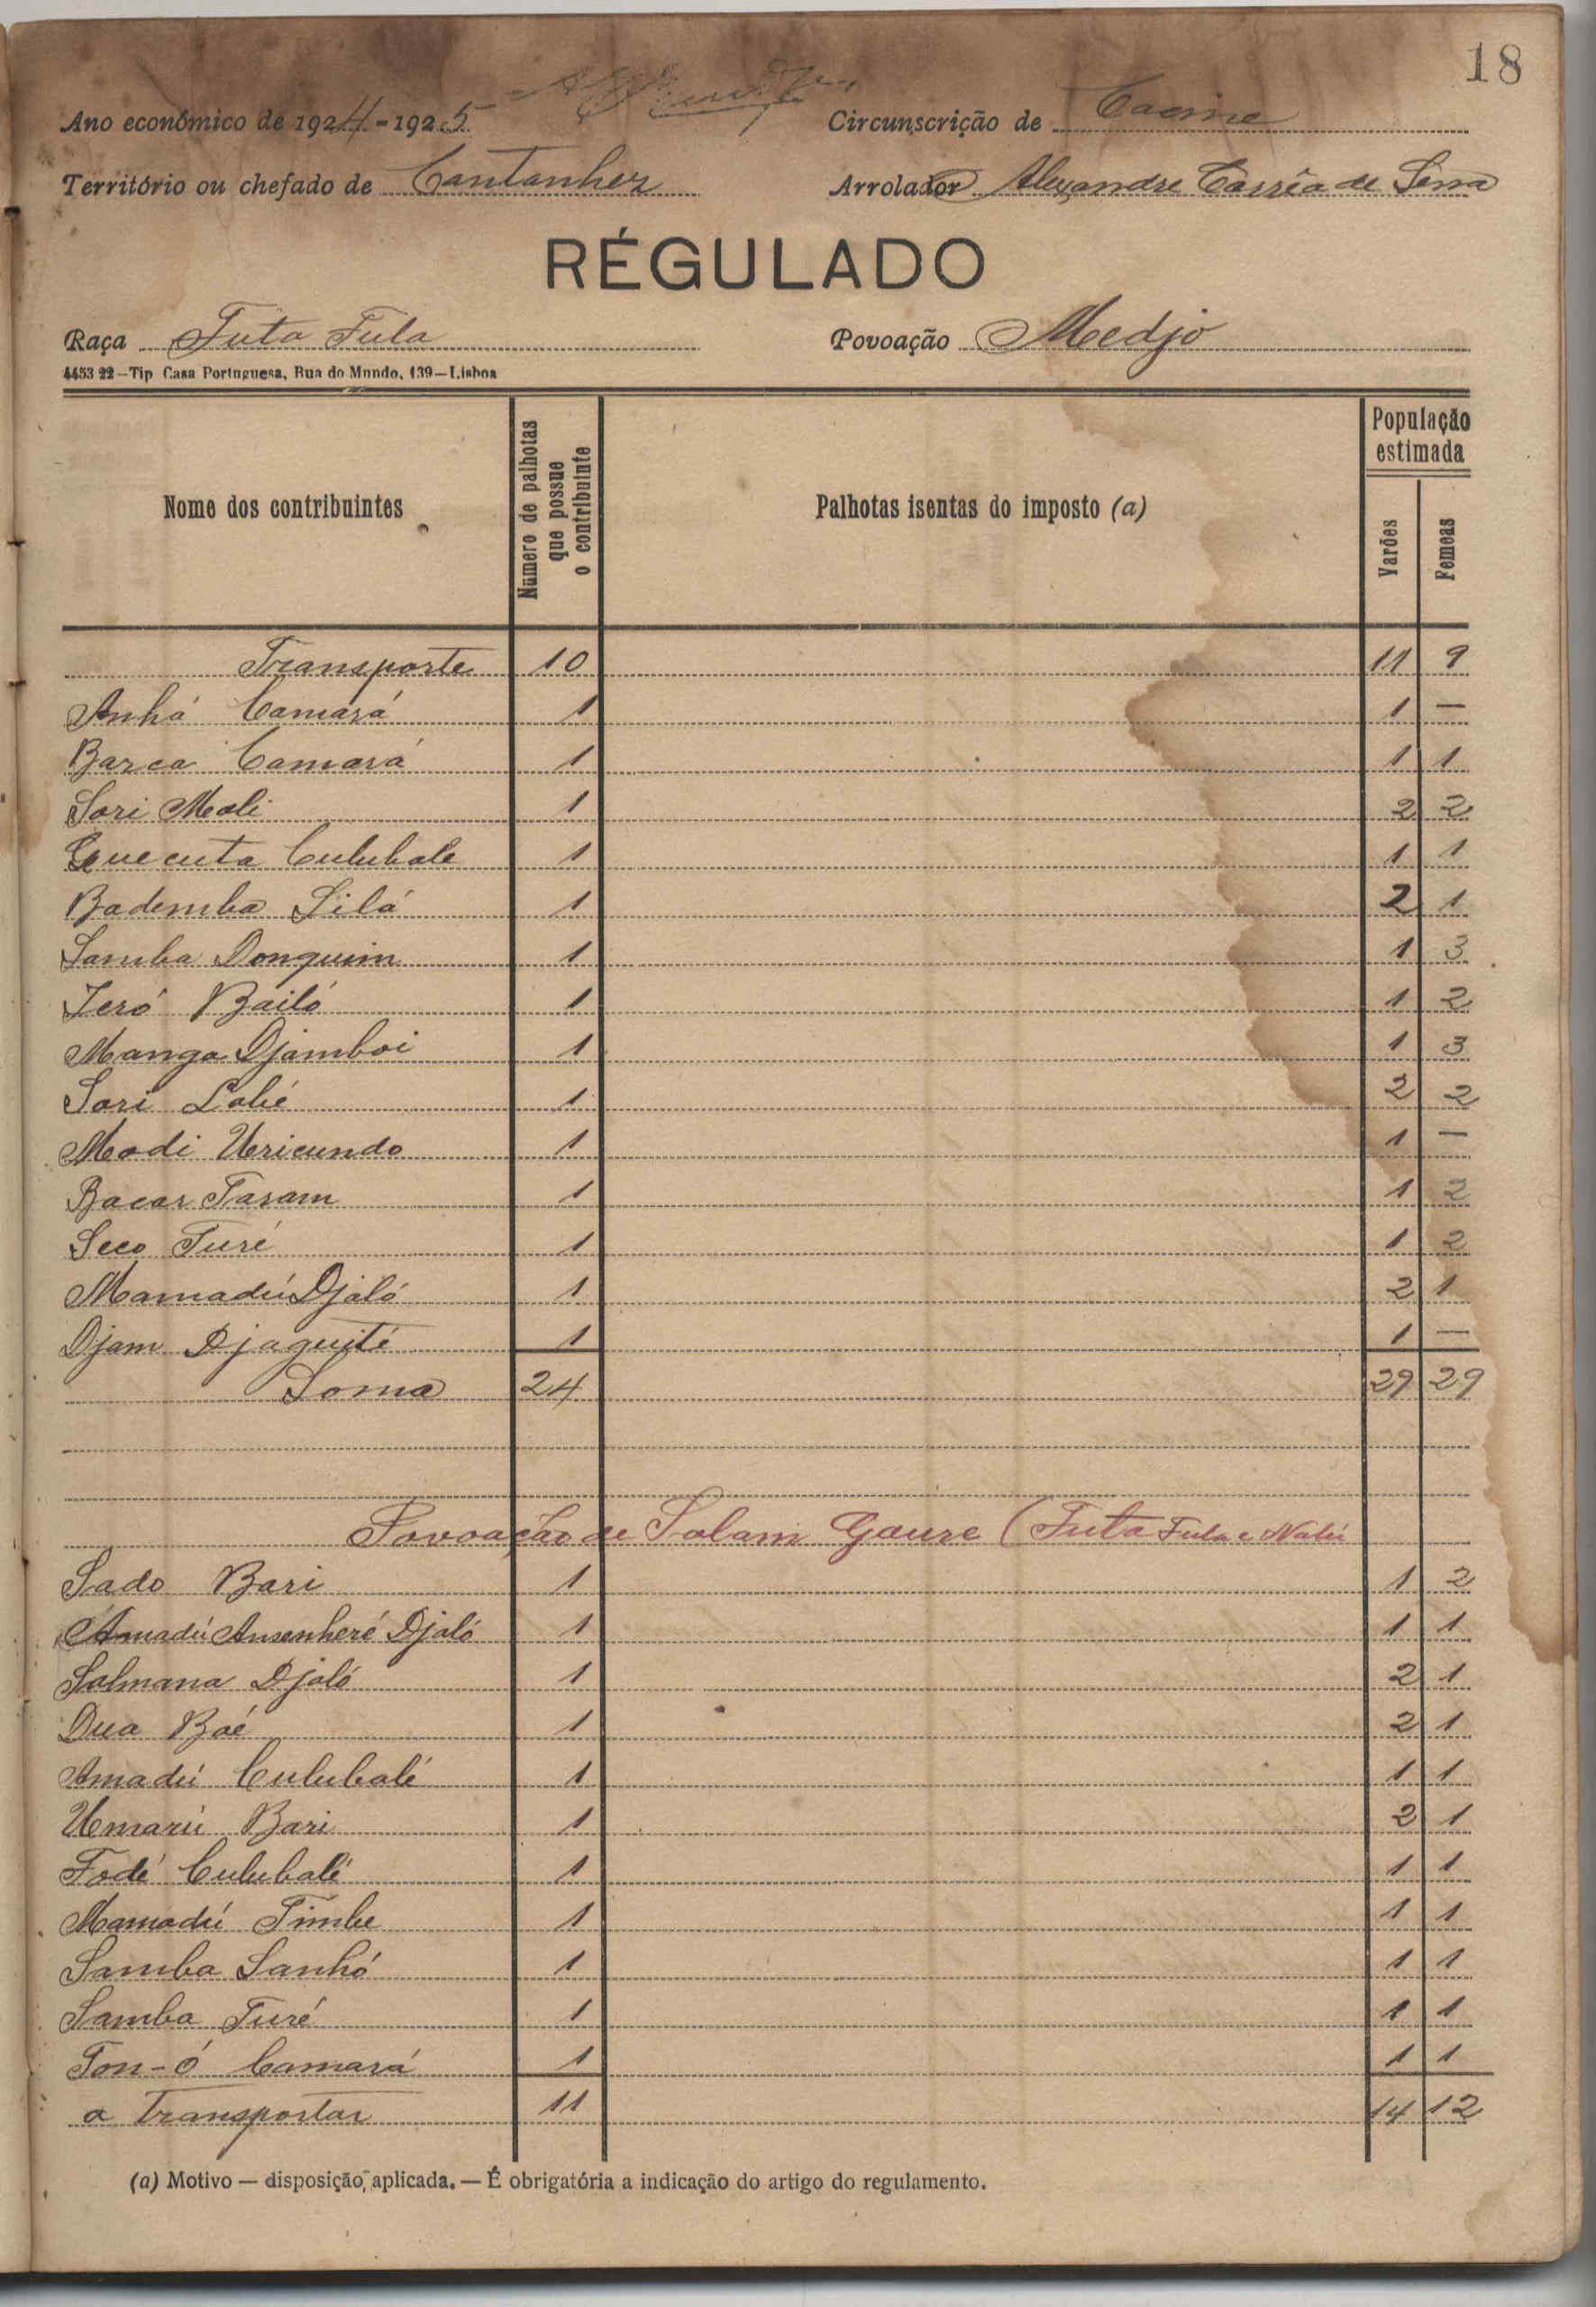 18
Ano económico de 1924-1925 Circunscrição de Cacine
Território ou chefado de Cantanhez Arrolador Alexandre Corrêa de Sena
RÉGULADO
Raça Futa Fula Povoação Medjo
4453 22—Tip Casa Portuguesa, Rua do Mundo, 139—Lisboa
Nome dos contribuintes Número de palhotas que possue o contribuinte Palhotas isentas do imposto (a) População estimada Varões Femeas
Transporte 10 11 9
Anhá Camará 1 1 —
Barca Camará 1 1 1
Sori Mali 1 2 2
Quecuta Culubale 1 1 1
Bademba Silá 1 2 1
Samba Donguim 1 1 3
Jeró Bailó 1 1 2
Manga Djamboi 1 1 3
Sori Labé 1 2 2
Modi Uricundo 1 1 —
Bacar Taram 1 1 2
Seco Turé 1 1 2
Mamadú Djaló 1 2 1
Djam Djaguité 1 1 —
Soma 24 29 29
Povoação de Salam Gaure (Futa Fula e Nalú
Sado Bari 1 1 2
Amadú Ansenheré Djaló 1 1 1
Salmana Djaló 1 2 1
Dua Baé 1 2 1
Amadú Culubalé 1 1 1
Umarú Bari 1 2 1
Fodé Culubalé 1 1 1
Mamadú Timbe 1 1 1
Samba Sanhó 1 1 1
Samba Turé 1 1 1
Ton-ó Camará 1 1 1
a Transportar 11 14 12
(a) Motivo — disposição, aplicada. — É obrigatória a indicação do artigo do regulamento.